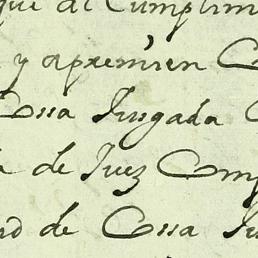 que al Cumplim
y apremien C
Cosa Jusgada C
a de Juez Comp
de Cosa Ju